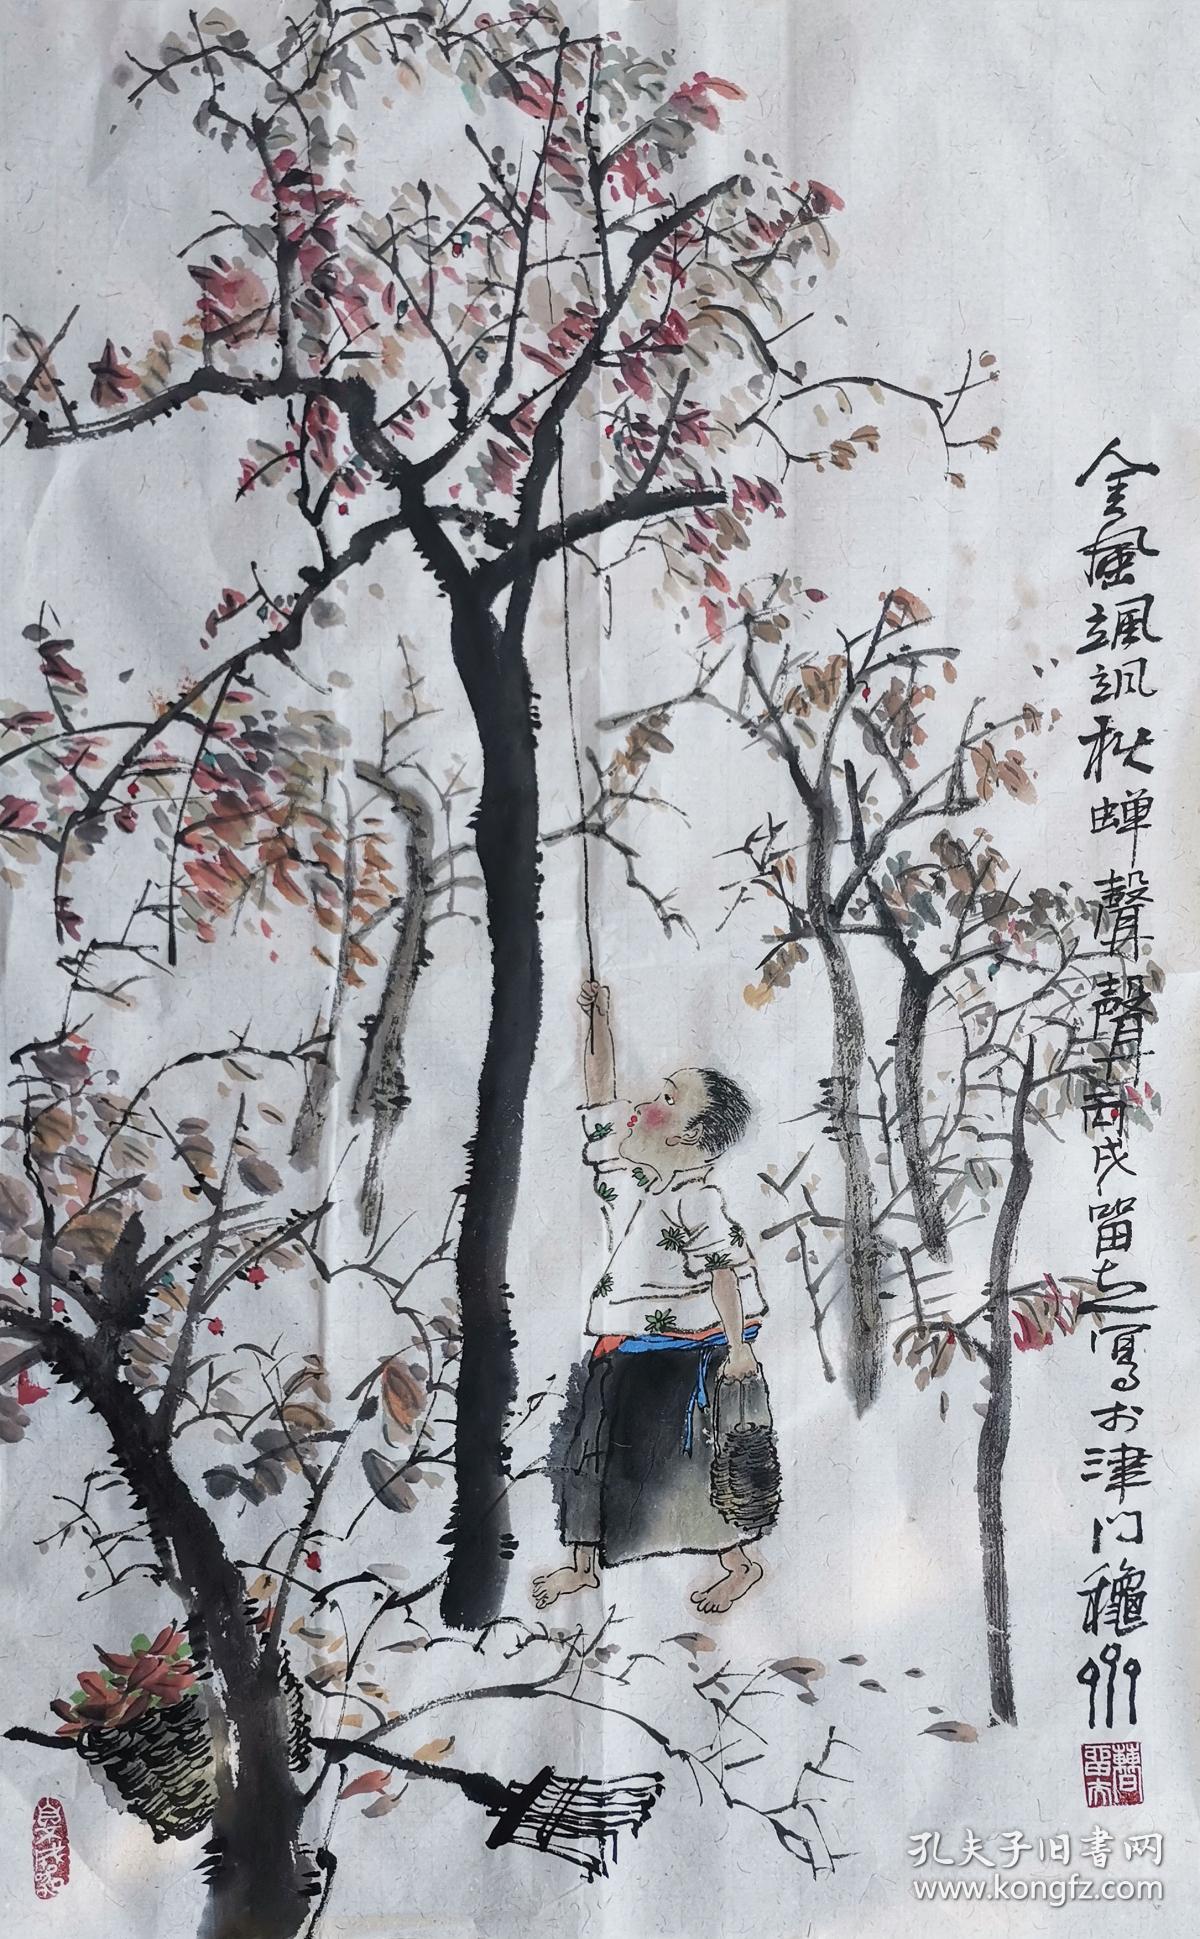 金風颯颯秋蟬聲聲丙戌留之寫於津門穐州
孔夫子旧书网
www.kongfz.com